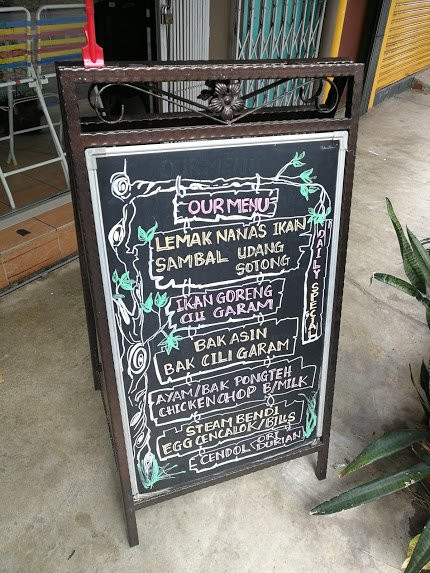 OUR MENU
LEMAK NANAS IKAN
SAMBAL UDANG
SOTONG
IKAN GORENG
CILI GARAM
BAK ASIN
BAK CILI GARAM
AYAM/BAK PONGTEH
CHICKEN CHOP B/MILK
STEAM BENDI
EGG CENCALOK/BILIS
CENDOL ORI
DURIAN
DAILY SPECIAL